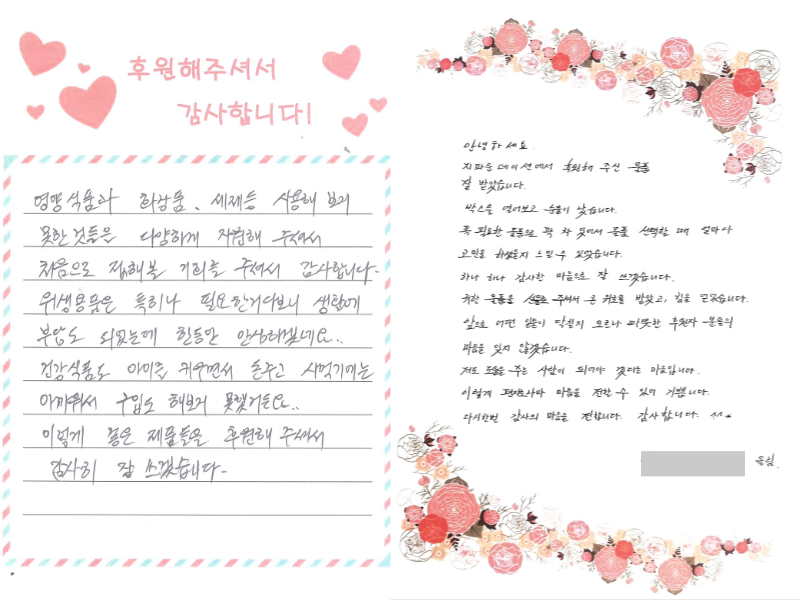 후원해주셔서
감사합니다!
영양식품과 화장품, 세제등 사용해 보지
못한것들을 다양하게 지원해 주셔서
처음으로 접해볼 기회를 주셔서 감사합니다-
위생용품은 특히나 필요한거다보니 생활에
부담도 되었는데 한동안 안심해겠네요..
건강식품도 아이를 키우면서 돈주고 사먹기에는
아까워서 구입도 해보지 못했거든요..
이렇게 좋은 제품들을 후원해 주셔서
감사히 잘 쓰겠습니다-
안녕하세요.
지파운데이션에서 후원해 주신 물품
잘 받았습니다.
박스를 열어보고 눈물이 났습니다.
꼭 필요한 물품으로 꽉 차 있어서 물품 선택할 때 얼마나
고민을 하셨는지 느낄 수 있었습니다.
하나 하나 감사한 마음으로 잘 쓰겠습니다.
귀한 물품을 선물로 주셔서 큰 위로를 받았고, 힘을 얻었습니다.
앞으로 어떤 일들이 닥칠지 모르나 따뜻한 후원자 분들의
마음을 잊지 않겠습니다.
저도 도움을 주는 사람이 되어야 겠다는 마음입니다.
이렇게 편지로나마 마음을 전할 수 있어 기쁩니다.
다시한번 감사의 마음을 전합니다. 감사합니다. ^^
올림.